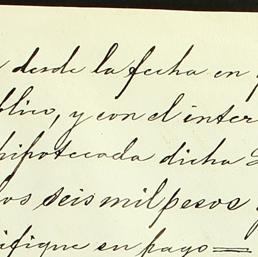 desde la fecha en
blico, y con el inter
hipotecada dicha
los seis mil pesos
ifique en pago=